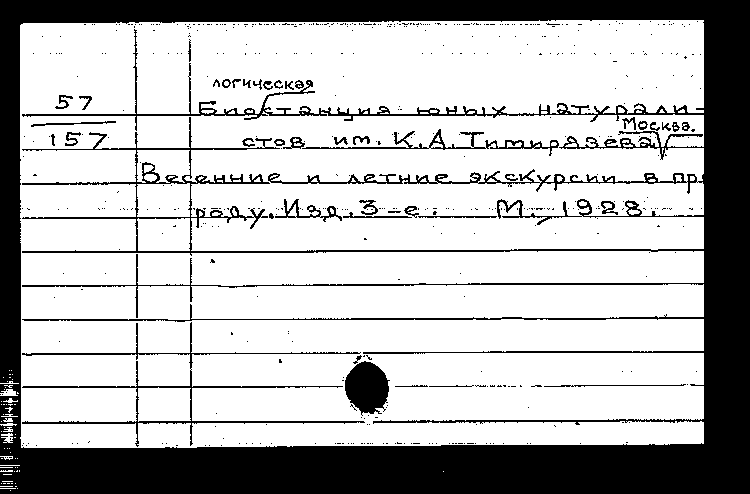 логическая
57 Биостанция юных натурали-
157 стов им. К.А.Тимирязева Москва.
Весенние и летние экскурсии в при
роду. Изд. 3-е. М., 1928.